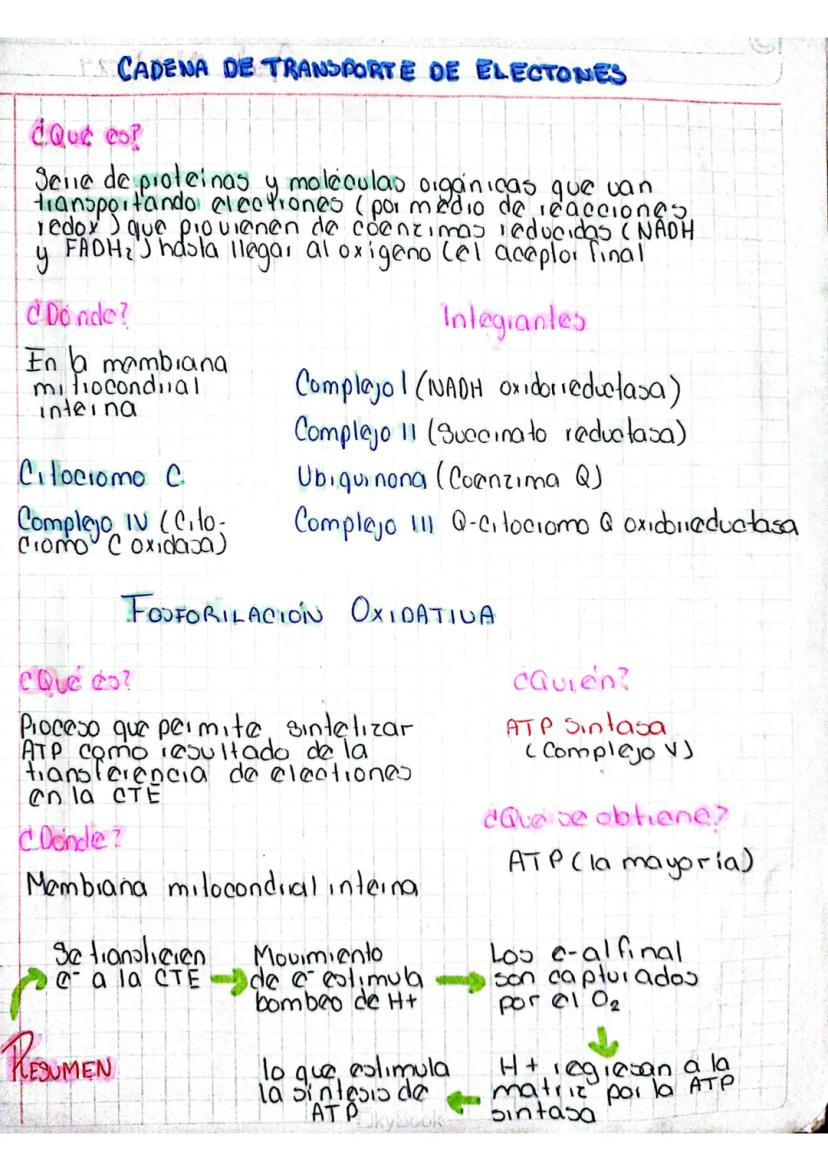 CADENA DE TRANSPORTE DE ELECTONES
¿Qué es?
Serie de proteínas y moléculas orgánicas que van
transportando electrones (por medio de reacciones
redox) que provienen de coenzimas reducidas (NADH
y FADH₂) hasta llegar al oxígeno (el aceptor final
¿Dónde?
En la membrana
mitrocondrial
interna
Integrantes
Complejo I (NADH oxidorreductasa)
Complejo II (Succinato reductasa)
Citocromo C
Ubiquinona (Coenzima Q)
Complejo IV (Cito-
cromo C oxidasa)
Complejo III Q-Citocromo Q oxidorreductasa
FOSFORILACIÓN OXIDATIVA
¿Qué es?
Proceso que permite sintetizar
ATP como resultado de la
transferencia de electrones
en la CTE
¿Quién?
ATP Sintasa
(Complejo V)
¿Dónde?
Membrana mitocondrial interna
¿Qué se obtiene?
ATP (la mayoría)
Se transfieren
e- a la CTE
Movimiento
de e- estimula
bombeo de H+
Los e- al final
son capturados
por el O₂
RESUMEN
H+ regresan a la
matriz por la ATP
sintasa
lo que estimula
la síntesis de
ATP